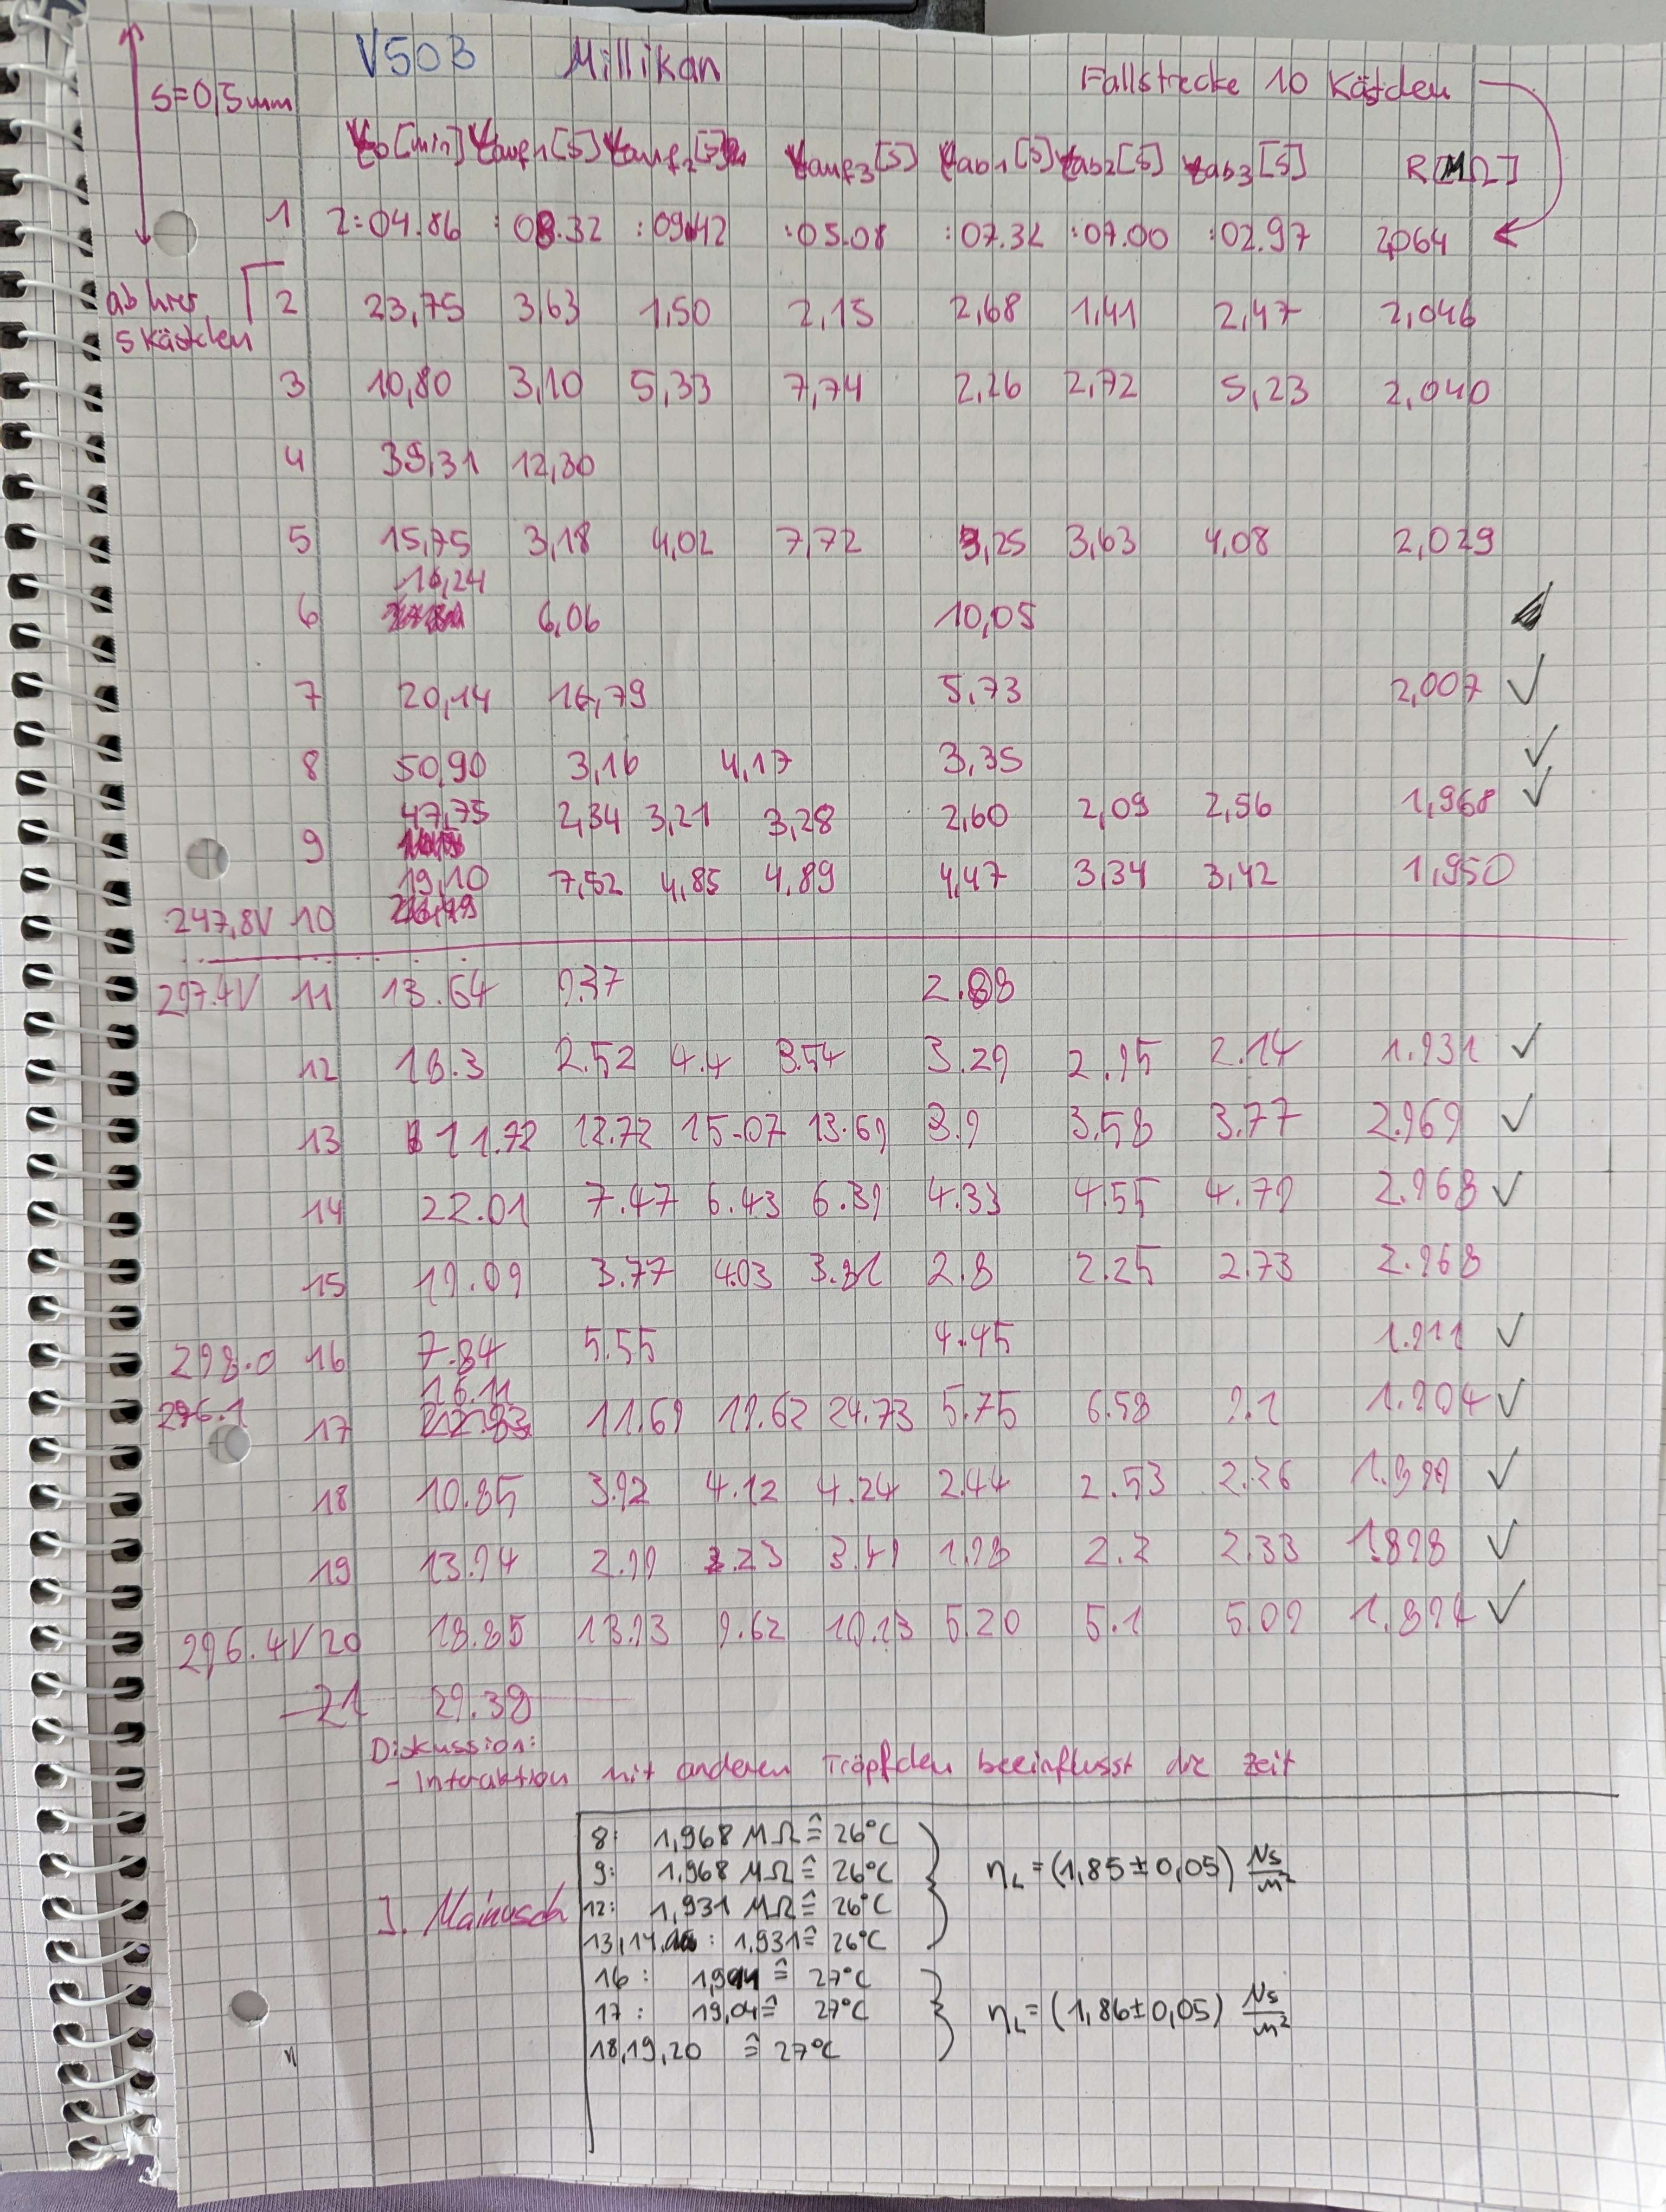 V503 Millikan
Fallstrecke 10 Kästchen
s=0,5mm
t0[min] tauf1[s] tauf2[s] tauf3[s] tab1[s] tab2[s] tab3[s] R[MΩ]
1 2:04.86 :08.32 :09.42 :05.08 :07.32 :07.00 :02.97 2,064
ab hier 5 Kästchen
2 23,75 3,63 1,50 2,15 2,68 1,41 2,47 2,046
3 10,80 3,10 5,33 7,74 2,26 2,72 5,23 2,040
4 39,31 12,30
5 15,75 3,18 4,02 7,72 3,25 3,63 4,08 2,029
6 16,24 6,06 10,05
7 20,14 16,79 5,73 2,007 ✓
8 50,90 3,16 4,17 3,35 ✓
9 47,75 2,34 3,21 3,28 2,60 2,09 2,56 1,968 ✓
247,8V 10 19,10 7,52 4,85 4,89 4,47 3,34 3,42 1,950
297.4V 11 13.64 9.37 2.88
12 18.3 2.52 4.4 3.54 3.29 2.95 2.14 1.931 ✓
13 11.72 12.72 15.07 13.69 3.9 3.58 3.77 2.969 ✓
14 22.01 7.47 6.43 6.39 4.33 4.55 4.79 2.968 ✓
15 19.09 3.77 4.03 3.81 2.8 2.25 2.73 2.968
298.0 16 7.84 5.55 4.45 1.911 ✓
296.1 17 16.11 11.69 19.62 24.73 5.75 6.58 9.1 1.904 ✓
18 10.85 3.92 4.12 4.24 2.44 2.53 2.26 1.899 ✓
19 13.94 2.99 3.23 3.49 1.98 2.2 2.33 1.898 ✓
296.4V 20 18.85 13.93 9.62 10.13 5.20 5.1 5.09 1.894 ✓
21 29.38
Diskussion:
- Interaktion mit anderen Tröpfchen beeinflusst die Zeit
8: 1,968 MΩ ≙ 26°C
9: 1,968 MΩ ≙ 26°C
12: 1,931 MΩ ≙ 26°C
13,14, : 1,931 ≙ 26°C
ηL = (1,85 ± 0,05) Ns/m²
J. Mainusch
16: 1,911 ≙ 27°C
17: 19,04 ≙ 27°C
18,19,20 ≙ 27°C
ηL = (1,86 ± 0,05) Ns/m²